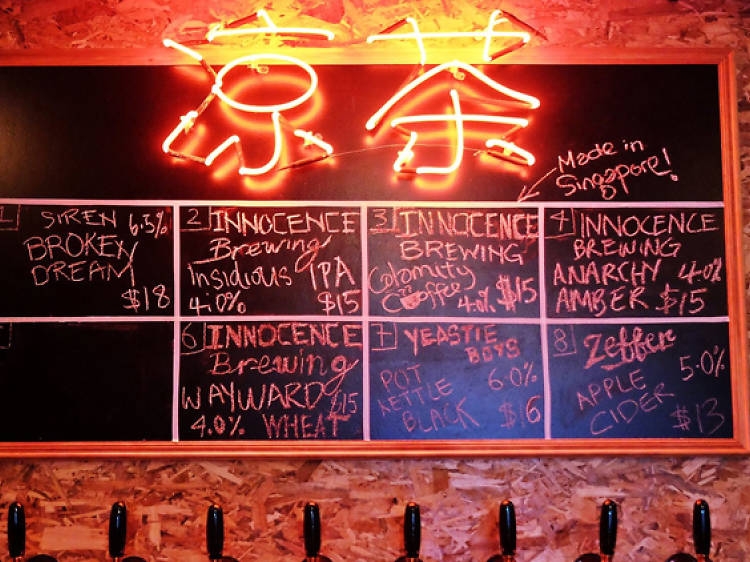 凉茶
Made in
Singapore!
1
SIREN 6.5%
BROKEN
DREAM
$18
2 INNOCENCE
Brewing
Insidious IPA
4.0% $15
3 INNOCENCE
BREWING
Calamity
Coffee 4.0% $15
4 INNOCENCE
BREWING
ANARCHY 4.0%
AMBER $15
6 INNOCENCE
Brewing
WAYWARD $15
4.0% WHEAT
7 YEASTIE
BOYS
POT 6.0%
KETTLE
BLACK $16
8 Zeffer
5.0%
APPLE
CIDER $13